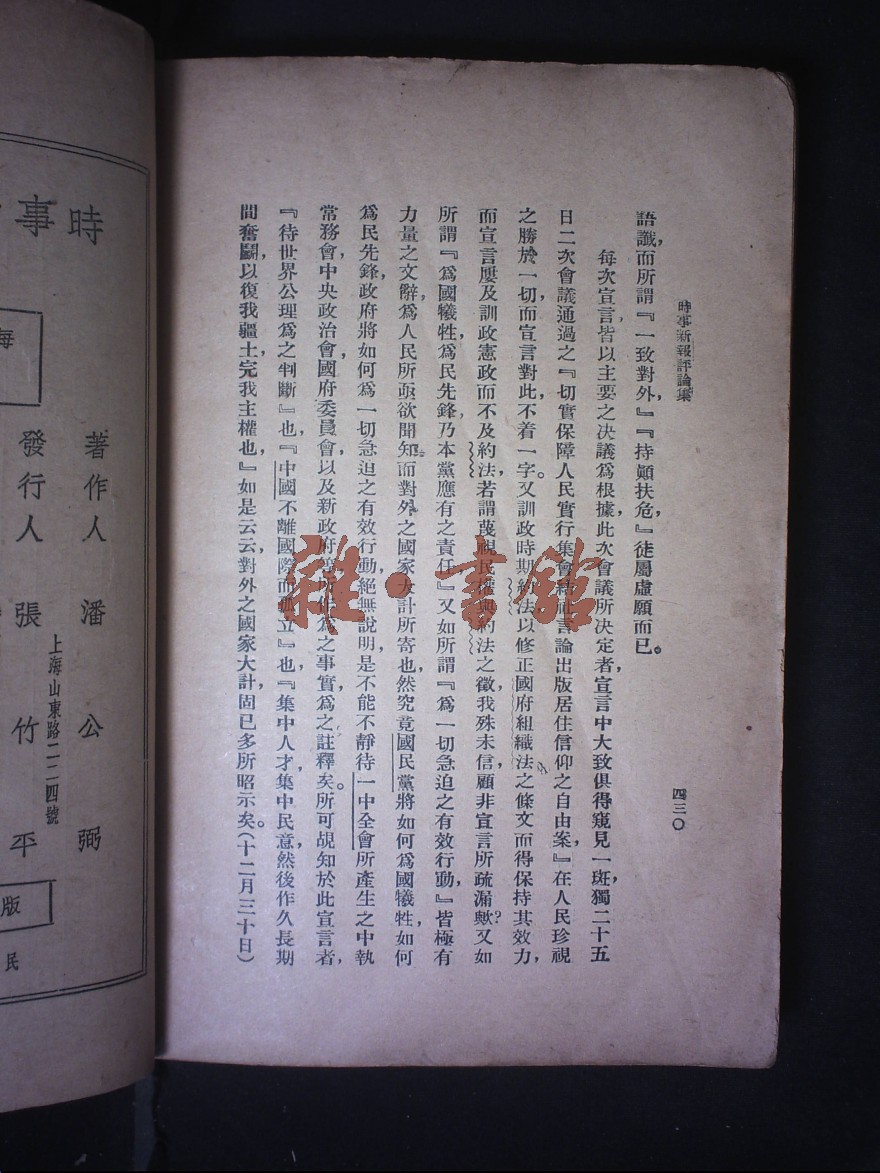 時事新報評論集
四三〇
語讖，而所謂『一致對外』，『持顚扶危』，徒屬虛願而已。
每次宣言，皆以主要之決議爲根據，此次會議所決定者，宣言中大致俱得窺見一斑，獨二十五
日二次會議通過之『切實保障人民實行集會結社言論出版居住信仰之自由案』，在人民珍視
之勝於一切，而宣言對此，不着一字。又訓政時期約法以修正國府組織法之條文而得保持其效力，
而宣言屢及訓政憲政而不及約法，若謂蔑視民權與約法之徵，我殊未信，顧非宣言所疏漏歟？又如
所謂『爲國犧牲，爲民先鋒，乃本黨應有之責任』，又如所謂『爲一切急迫之有效行動』，皆極有
力量之文辭，爲人民所亟欲聞知，而對外之國家大計所寄也，然究竟國民黨將如何爲國犧牲，如何
爲民先鋒，政府將如何爲一切急迫之有效行動，絕無說明，是不能不靜待一中全會所產生之中執
常務會，中央政治會，國府委員會，以及新政府 之事實，爲之註釋矣。所可覘知於此宣言者，
『待世界公理爲之判斷』也，『中國不離國際而孤立』也，『集中人才，集中民意，然後作久長期
間奮鬭，以復我疆土，完我主權也，』如是云云，對外之國家大計，固已多所昭示矣。（十二月三十日）
時事
海
著作人 潘公弼
發行人 張竹平
上海山東路二二四號
版
民
雜·書館